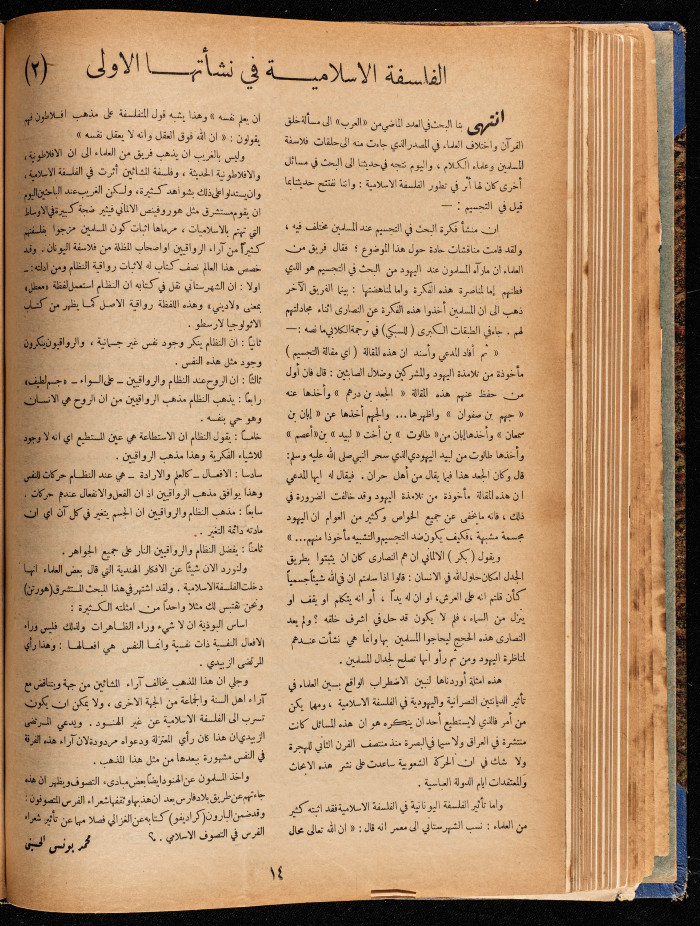 الفلسفة الاسلامية في نشأتها الاولى (٢)
انتهى بنا البحث في العدد الماضي من «العرب» الى مسألة خلق
القرآن واختلاف العلماء في المصدر الذي جاءت منه الى حلقات فلاسفة
المسلمين وعلماء الكلام ، واليوم نتجه في حديثنا الى البحث في مسائل
أخرى كان لها أثر في تطور الفلسفة الاسلامية : واننا نفتتح حديثنا بما
قيل في التجسيم : —
ان منشأ فكرة البحث في التجسيم عند المسلمين مختلف فيه ،
ولقد قامت مناقشات حادة حول هذا الموضوع ؛ فقال فريق من
العلماء ان مارآه المسلمون عند اليهود من البحث في التجسيم هو الذي
فطنهم إما لمناصرة هذه الفكرة واما لمناهضتها : بينما الفريق الآخر
ذهب الى ان المسلمين أخذوا هذه الفكرة عن النصارى اثناء مجادلتهم
لهم . جاء في الطبقات الكبرى (للسبكي) في ترجمة الكلابي ما نصه :—
« ثم أفاد المدعي وأسند ان هذه المقالة ( اي مقالة التجسيم )
مأخوذة من تلامذة اليهود والمشركين وضلال الصابئين : قال فان أول
من حفظ عنهم هذه المقالة « الجعد بن درهم » وأخذها عنه
« جهم بن صفوان » واظهرها... والجهم أخذها عن « إبان بن
سمعان » وأخذها إبان من « طالوت » بن أخت « لبيد » بن «أعصم »
وأخذها طالوت من لبيد اليهودي الذي سحر النبي صلى الله عليه وسلم:
قال وكان الجعد هذا فيما يقال من أهل حران . فيقال له ايها المدعي
ان هذه المقالة مأخوذة من تلامذة اليهود وقد خالفت الضرورة في
ذلك ، فانه مايخفى عن جميع الخواص وكثير من العوام ان اليهود
مجسمة مشبهة ، فكيف يكون ضد التجسيم والتشبيه مأخوذا منهم... »
ويقول (بكر) الالماني ان هم النصارى كان ان يثبتوا بطريق
الجدل امكان حلول الله في الانسان : قالوا اذا سلمتم ان في الله شيئاً جسمياً
كأن قلتم انه على العرش، او ان له يداً ، أو انه يتكلم او يقف او
ينزل من السماء، فلم لا يكون قد حل في اشرف خلقه ؟ ولم يعد
النصارى هذه الحجج ليحاجوا المسلمين بها وانما هي نشأت عندهم
لمناظرة اليهود ومن ثم رأوا انها تصلح لجدال المسلمين .
هذه امثلة أوردناها لنبين الاضطراب الواقع بين العلماء في
تأثير الديانتين النصرانية واليهودية في الفلسفة الاسلامية ، ومهما يكن
من أمر فالذي لا يستطيع أحد ان ينكره هو ان هذه المسائل كانت
منتشرة في العراق ولا سيما في البصرة منذ منتصف القرن الثاني للهجرة
ولا شك في ان الحركة الشعوبية ساعدت على نشر هذه الابحاث
والمعتقدات ايام الدولة العباسية .
واما تأثير الفلسفة اليونانية في الفلسفة الاسلامية فقد اثبته كثير
من العلماء : نسب الشهرستاني الى معمر انه قال : « ان الله تعالى محال
ان يعلم نفسه » وهذا يشبه قول المتفلسفة على مذهب افلاطون فهم
يقولون : « ان الله فوق العقل وانه لا يعقل نفسه »
وليس بالغريب ان يذهب فريق من العلماء الى ان الافلاطونية ،
والافلاطونية الحديثة ، وفلسفة المشائين أثرت في الفلسفة الاسلامية ،
وان يستدلوا على ذلك بشواهد كثيرة، ولكن الغريب عند الباحثين اليوم
ان يقوم مستشرق مثل هوروفيتس الالماني فيثير ضجة كبيرة في الاوساط
التي تهتم بالاسلاميات ، مرماها اثبات كون المسلمين مزجوا بفلسفتهم
كثيراً من آراء الرواقيين او اصحاب المظلة من فلاسفة اليونان . وقد
خصص هذا العالم نصف كتاب له لاثبات رواقية النظام ومن ادلته :—
اولا : ان الشهرستاني نقل في كتابه ان النظام استعمل لفظة «معطل»
بمعنى «لاديني» وهذه اللفظة رواقية الاصل كما يظهر من كتاب
الاثولوجيا لارسطو .
ثانياً : ان النظام ينكر وجود نفس غير جسمانية ، والرواقيون ينكرون
وجود مثل هذه النفس .
ثالثاً : ان الروح عند النظام والرواقيين — على السواء — «جسم لطيف»
رابعاً : يذهب النظام مذهب الرواقيين من ان الروح هي الانسان
وهو حي بنفسه .
خامساً : يقول النظام ان الاستطاعة هي عين المستطيع اي انه لا وجود
للاشياء الفكرية وهذا مذهب الرواقيين .
سادسا : الافعال — كالعلم والارادة — هي عند النظام حركات للنفس
وهذا يوافق مذهب الرواقيين اذ ان الفعل والانفعال عندهم حركات .
سابعاً : مذهب النظام والرواقيين ان الجسم يتغير في كل آن اي ان
مادته دائمة التغير .
ثامناً : يفضل النظام والرواقيين النار على جميع الجواهر .
ولنورد الان شيئاً عن الافكار الهندية التي قال بعض العلماء انها
دخلت الفلسفة الاسلامية . ولقد اشتهر في هذا المبحث المستشرق (هورتن)
ونحن نقتبس لك مثلا واحداً من امثلته الكثيرة :
اساس البوذية ان لا شيء وراء الظاهرات ولذلك فليس وراء
الافعال النفسية ذات نفسية وانما النفس هي افعالها : وهذا رأي
المرتضى الزبيدي .
وجلي ان هذا المذهب يخالف آراء المشائين من جهة ويتناقض مع
آراء اهل السنة والجماعة من الجهة الاخرى ، ولا يمكن ان يكون
تسرب الى الفلسفة الاسلامية عن غير الهنود . ويدعي المرتضى
الزبيدي ان هذا كان رأي المعتزلة ودعواه مردودة لان آراء هذه الفرقة
في النفس مشهورة ببعدها عن مثل هذا المذهب .
واخذ المسلمون عن الهنود ايضاً بعض مبادئ التصوف ويظهر ان هذه
جاءتهم عن طريق بلاد فارس بعد ان هذبها وثقفها شعراء الفرس المتصوفون :
وقد ضمن البارون (كراديفو) كتابه عن الغزالي فصلا مهما عن تأثير شعراء
الفرس في التصوف الاسلامي . ؟
محمد يونس الحسيني
١٤